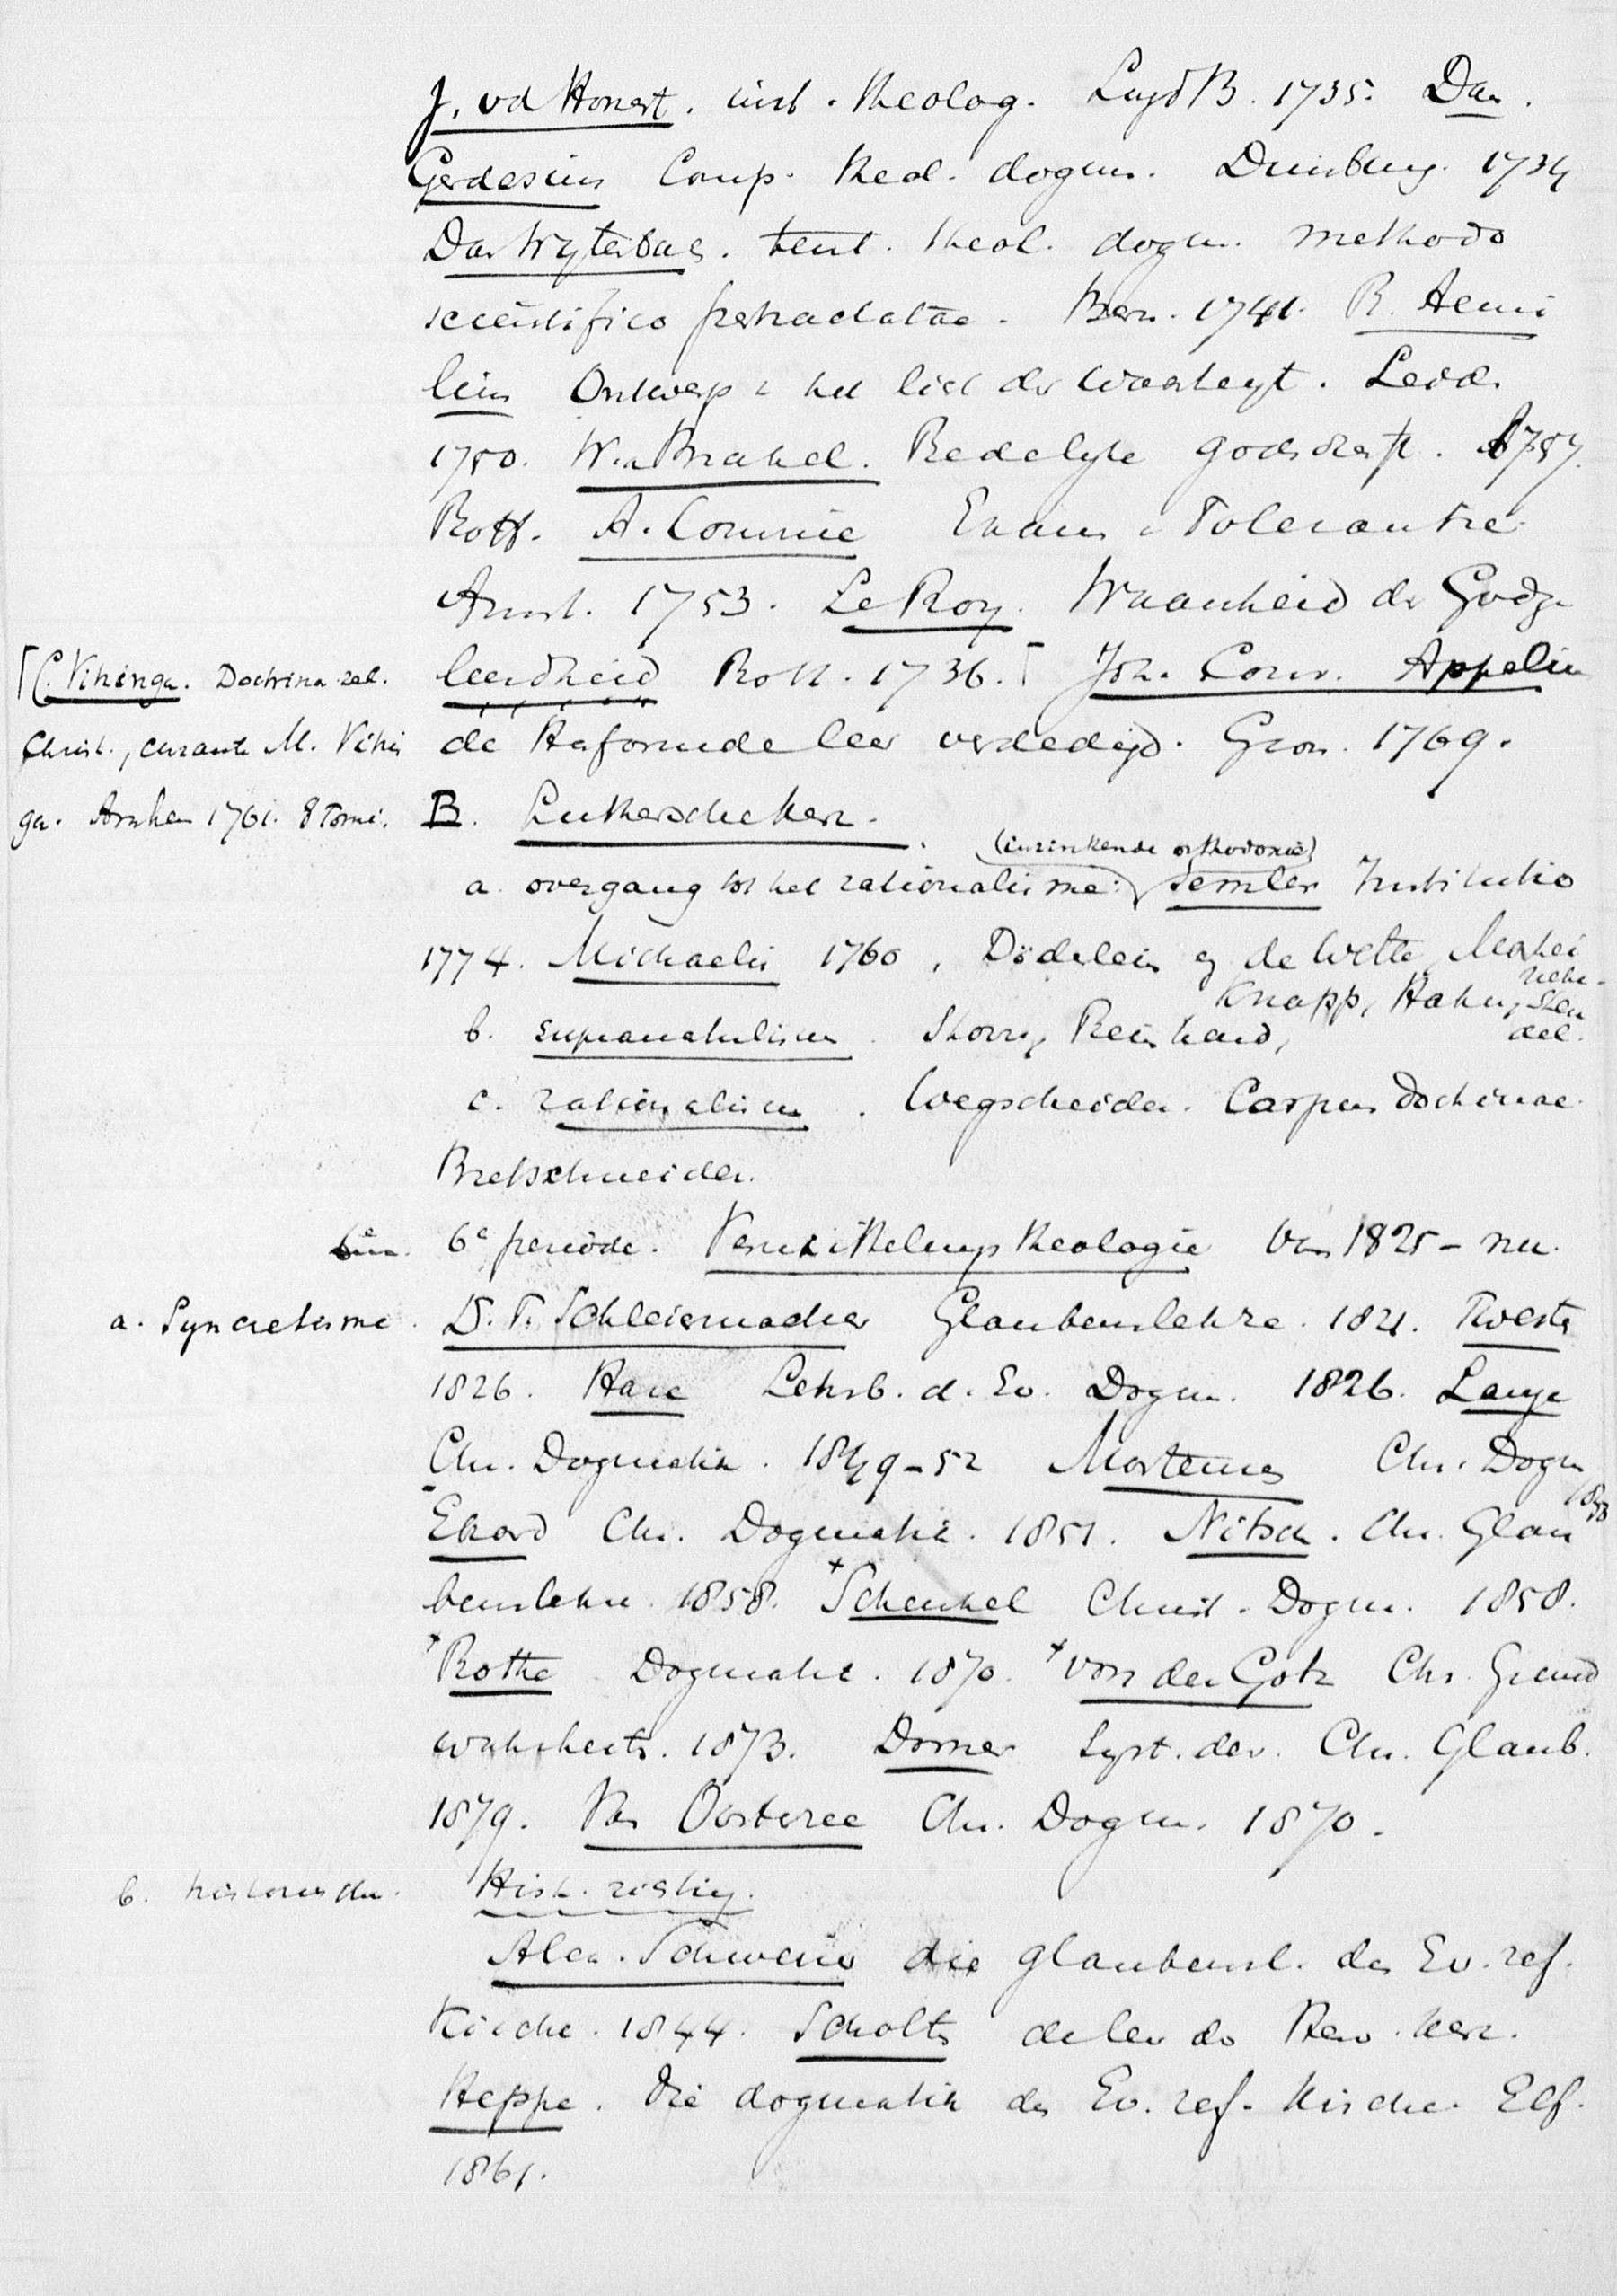 J. vd Honert. inst. theolog. LugdB. 1735. Dan.
Gerdesius Comp. theol. dogm. Duisburg. 1734
Dan Wyttenbac. tent. theol. dogm. methodo
scientifico pertractatae. Bern. 1741. R. Aemi
lius Ontwerp v het licht der Waarheyt. Leid.
1750. W. a Brakel. Redelyke godsdienst. 1757.
Rott. A. Comrie Exam. v Tolerantie
Amst. 1753. Le Roy. Waarheid der Godge
⌈C. Vitringa. Doctrina rel.
Christ., curante M. Vitrin
ga. Arnhem 1761. 8 Tomi.
leerdheid Rott. 1736. ⌈ Joh. Conr. Appelius
de Hervormde leer verdedigd. Gron. 1769.
B. Luthersche Kerk.
(inzinkende orthodoxie)
a. overgang tot het rationalisme: Semler Institutio
1774. Michaelis 1760, Döderlein, de Wette, Marhei
neke.
Knapp, Hahn, Steu
del.
b. supranaturalisme. Storr, Reinhard,
c. rationalisme. Wegscheider. Corpus doctrinae.
Bretschneider.
6e periode. Vermittelungstheologie van 1825 - nu.
a. Syncretisme. D. F. Schleiermacher Glaubenslehre. 1821. Twesten
1826. Hase Lehrb. d. Ev. Dogm. 1826. Lange
Chr. Dogmatik. 1849-52 Martensen Chr. Dogm
1853
Ebrard Chr. Dogmatik. 1851. Nitsch. Chr. Glau
benslehre. 1858. +Schenkel Christ. Dogm. 1858.
+Rothe Dogmatik. 1870. +von der Goltz Chr. Grund
wahrheits. 1873. Dorner Syst. der. Chr. Glaub.
1879. Van Oosterzee Chr. Dogm. 1870.
b. historische. Hist. richting.
Alex. Schweizer die glaubensl. der Ev. ref.
Kirche. 1844. Scholten de leer der Herv. kerk.
Heppe. Die dogmatik der Ev. ref. Kirche. Elf.
1861.